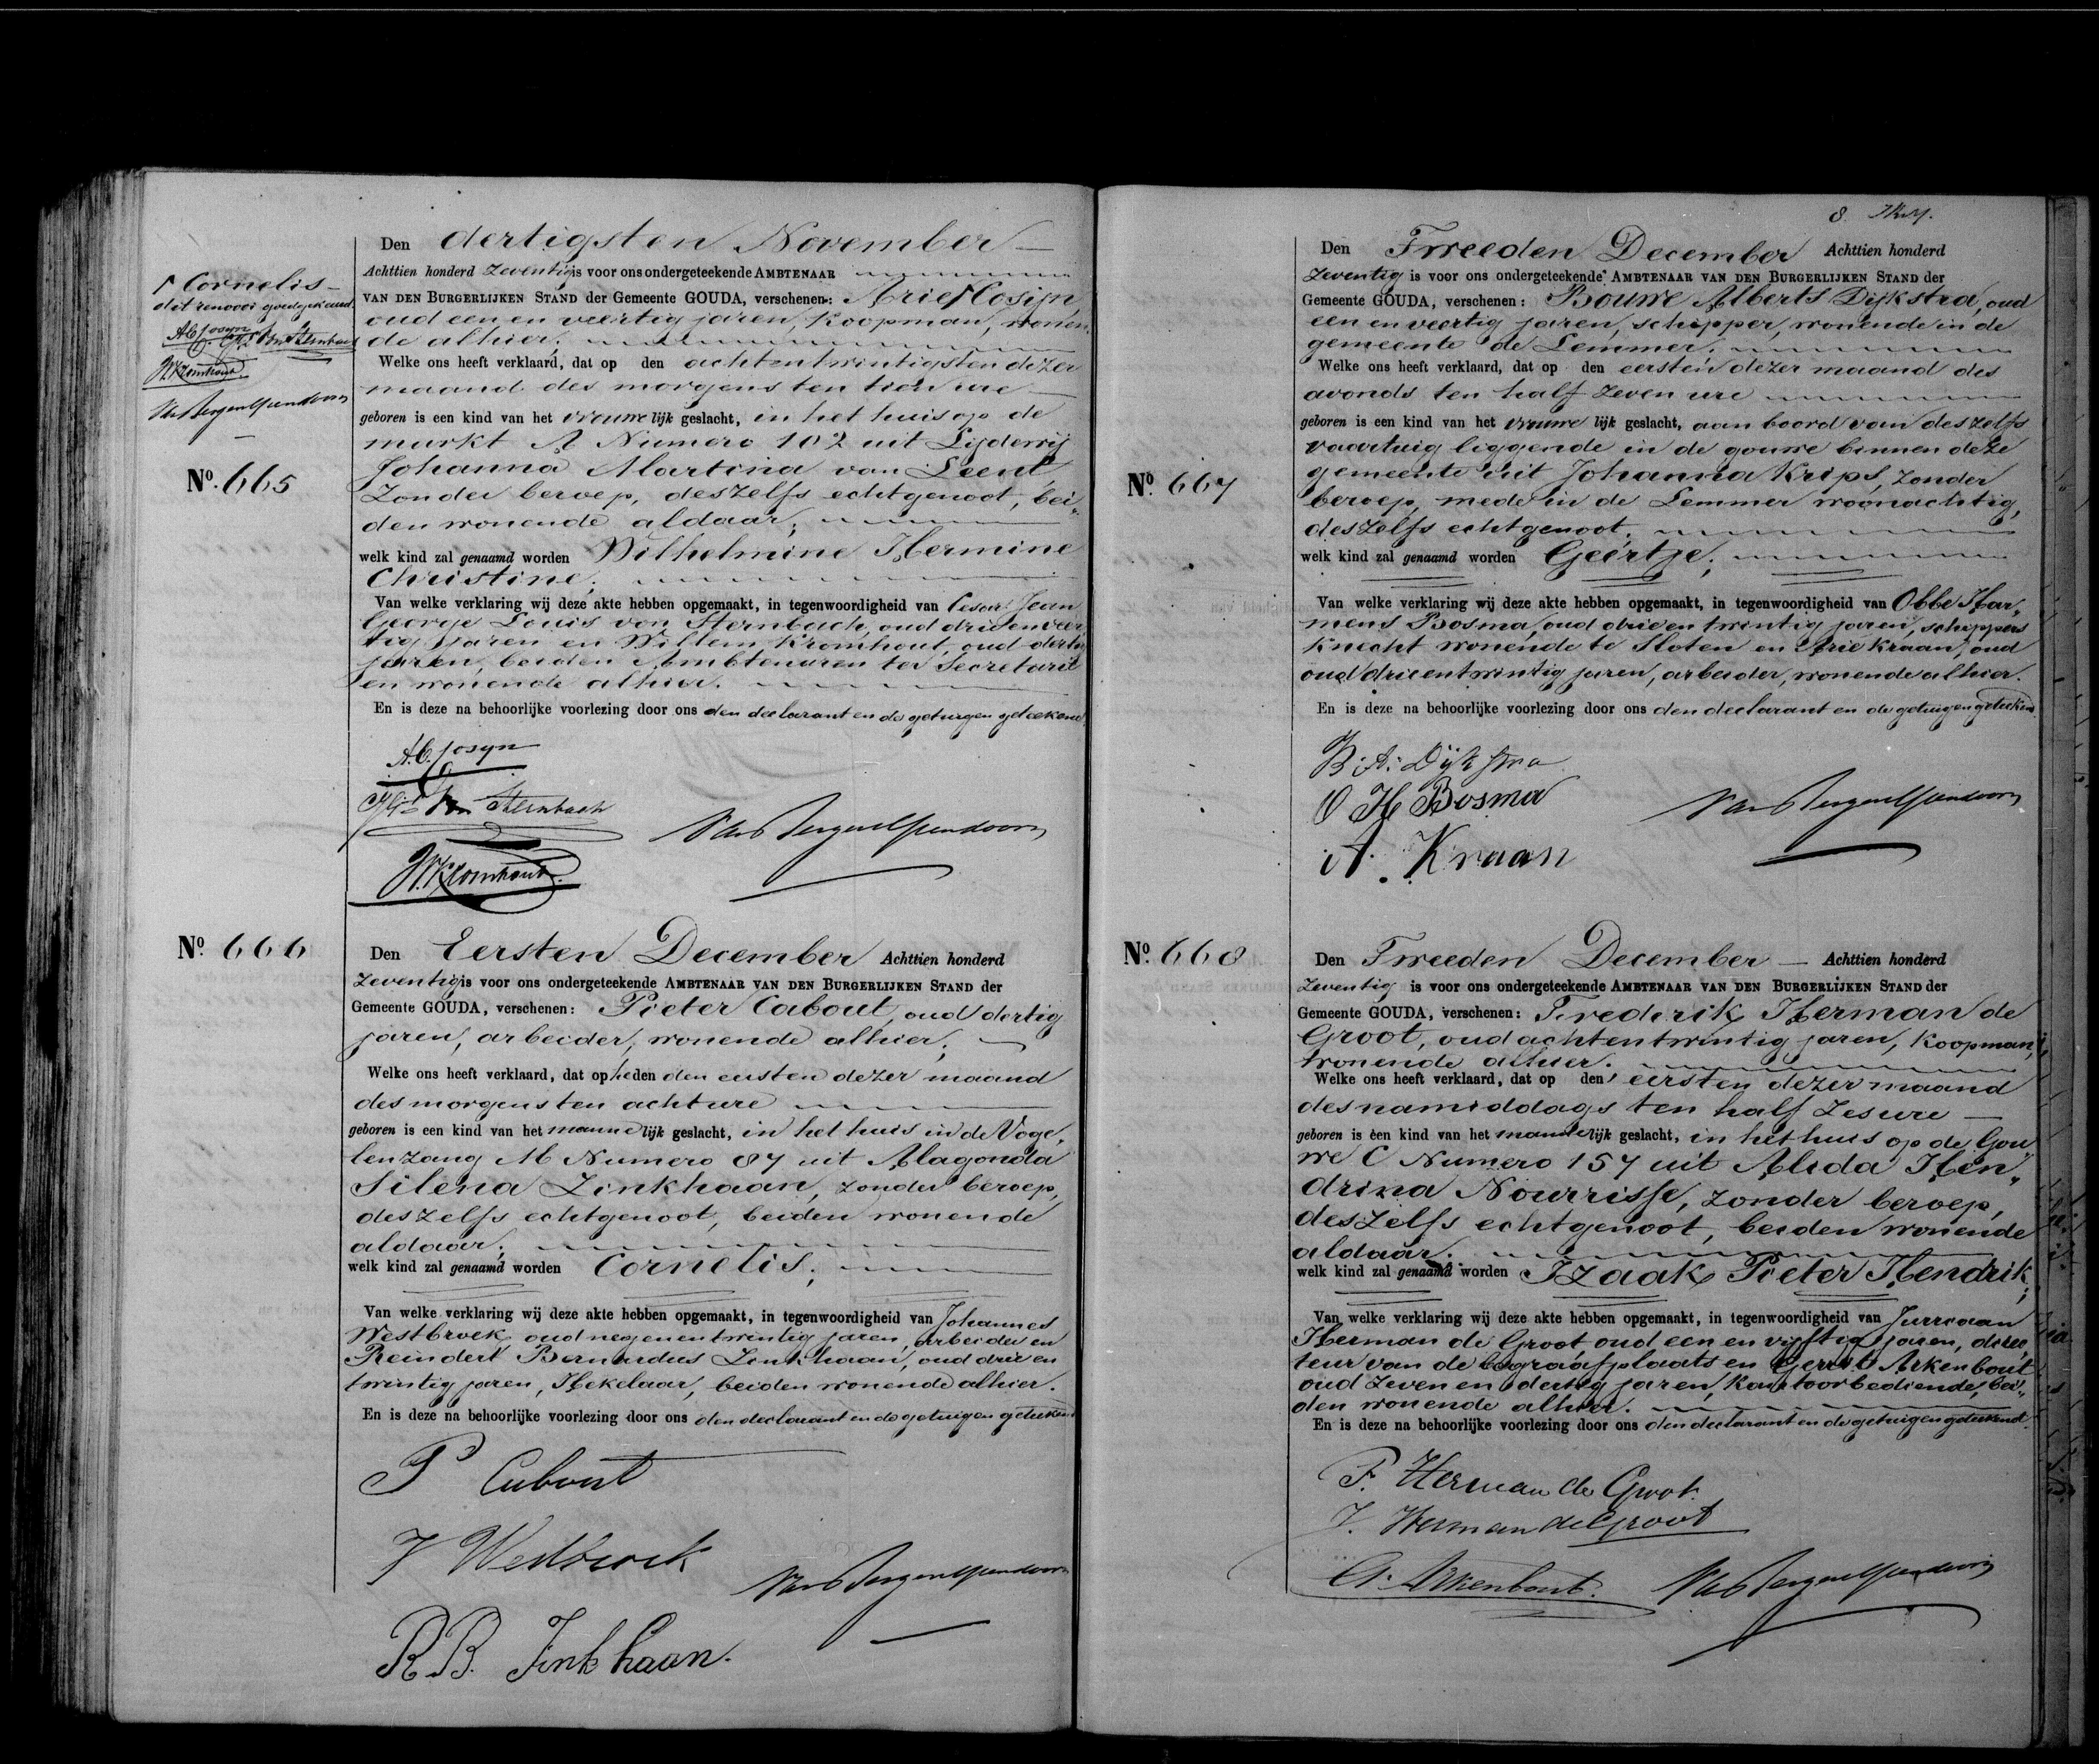 Cornelis
dit renvooi goedgekeurd.
AC Cosijn
von Sternbach
W. Kromhout
Van Bergen IJzendoorn
No. 665
Den dertigsten November
Achttien honderd Zeventig is voor ons ondergeteekende AMBTENAAR
VAN DEN BURGERLIJKEN STAND der Gemeente GOUDA, verschenen: Arie Cosijn,
oud een en veertig jaren, Koopman, wonen-
de alhier;
Welke ons heeft verklaard, dat op den achtentwintigsten dezer
maand des morgens ten tien ure
geboren is een kind van het vrouwelijk geslacht, in het huis op de
markt A Numero 102 uit Lijdewij
Johanna Martina van Leent,
Zonder beroep, deszelfs echtgenoot, bei„
den wonende aldaar;
welk kind zal genaamd worden Wilhelmine Hermine
Christine;
Van welke verklaring wij deze akte hebben opgemaakt, in tegenwoordigheid van Cesar Jean
George Louis von Sternbach, oud drieenveer
tig jaren en Willem Kromhout, oud dertig
jaren, beiden Ambtenaren ter Secretarie
en wonende alhier.
En is deze na behoorlijke voorlezing door ons den declarant en de getuigen geteekend
A.C. Cosijn
von Sternbach
W. Kromhout
Van Bergen IJzendoorn
No. 666
Den Eersten December Achttien honderd
Zeventig is voor ons ondergeteekende AMBTENAAR VAN DEN BURGERLIJKEN STAND der
Gemeente GOUDA, verschenen: Pieter Cabout, oud dertig
jaren, arbeider, wonende alhier;
Welke ons heeft verklaard, dat op heden den eersten dezer maand
des morgens ten acht ure
geboren is een kind van het mannelijk geslacht, in het huis in de Voge„
lenzang M Numero 87 uit Alagonda
Silena Zinkhaan, zonder beroep,
deszelfs echtgenoot, beiden wonende
aldaar;
welk kind zal genaamd worden Cornelis;
Van welke verklaring wij deze akte hebben opgemaakt, in tegenwoordigheid van Johannes
Westbroek, oud negenentwintig jaren, arbeider en
Reindert Bernardus Zinkhaan, oud drie en
twintig jaren, Hekelaar, beiden wonende alhier.
En is deze na behoorlijke voorlezing door ons den declarant en de getuigen geteekend
P Cabout
J Westbroek
Van Bergen IJzendoorn
R.B. Zinkhaan.
8.
No. 667
Den Tweeden December Achttien honderd
Zeventig is voor ons ondergeteekende AMBTENAAR VAN DEN BURGERLIJKEN STAND der
Gemeente GOUDA, verschenen: Bouwe Alberts Dijkstra, oud
een en veertig jaren, schipper, wonende in de
gemeente de Lemmer;
Welke ons heeft verklaard, dat op den eersten dezer maand des
avonds ten half zeven ure
geboren is een kind van het vrouwelijk geslacht, aan boord van deszelfs
vaartuig liggende in de gouwe binnen deze
gemeente uit Johanna Krips, zonder
beroep, mede in de Lemmer woonachtig,
deszelfs echtgenoot.
welk kind zal genaamd worden Geertje;
Van welke verklaring wij deze akte hebben opgemaakt, in tegenwoordigheid van Obbe Har„
mens Bosma, oud drie en twintig jaren, schippers
Knecht wonende te Sloten en Arie Kraan, oud
oud drieentwintig jaren, arbeider, wonende alhier.
En is deze na behoorlijke voorlezing door ons den declarant en de getuigen geteekend
B. A. Dijkstra
O H Bosma
A. Kraan
Van Bergen IJzendoorn
No. 668
Den Tweeden December Achttien honderd
Zeventig is voor ons ondergeteekende AMBTENAAR VAN DEN BURGERLIJKEN STAND der
Gemeente GOUDA, verschenen: Frederik Herman de
Groot, oud achtentwintig jaren, Koopman,
wonende alhier.
Welke ons heeft verklaard, dat op den eersten dezer maand
des namiddags ten half zes ure
geboren is een kind van het mannelijk geslacht, in het huis op de Gou„
we C Numero 157 uit Alida Hen„
drina Nourrisse, zonder beroep,
deszelfs echtgenoot, beiden wonende
aldaar.
welk kind zal genaamd worden Izaak Pieter Hendrik;
Van welke verklaring wij deze akte hebben opgemaakt, in tegenwoordigheid van Jurriaan
Herman de Groot, oud een en vijftig jaren, direc„
teur van de begraafplaats en Gerrit Arkenbout
oud zeven en dertig jaren, Kantoorbediende, bei„
den wonende alhier.
En is deze na behoorlijke voorlezing door ons den declarant en de getuigen geteekend
F. Herman de Groot.
J. Herman de Groot
G. Arkenbout.
Van Bergen IJzendoorn